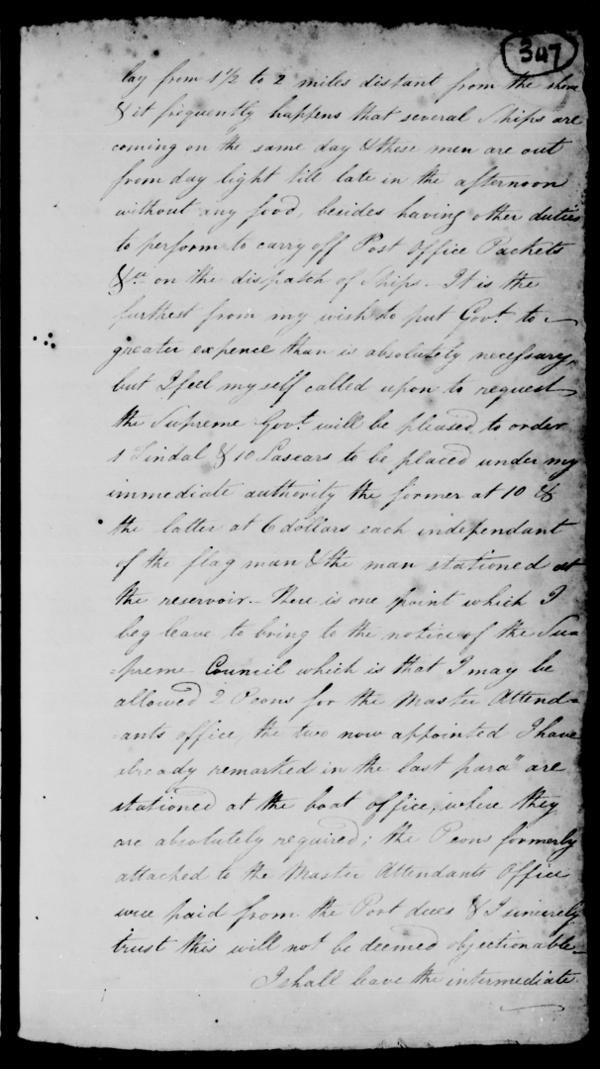 347
lay from 1 1/2 to 2 miles distant from the shore
& it frequently happens that several Ships are
coming on the same day & these men are out
from day light till late in the afternoon
without any food, besides having other duties
to perform to carry off Post Office Packets
&ca on the dispatch of Ships - It is the
furthest from my wish to put Govt. to
greater expence than is absolutely necessary,
but I feel myself called upon to request
the Supreme Govt. will be pleased to order
1 Tindal & 10 Lascars to be placed under my
immediate authority the former at 10 &
the latter at 6 dollars each independant
of the flag man & the man stationed at
the reservoir - There is one point which I
beg leave to bring to the notice of the Su=
=preme Council which is that I may be
allowed 2 Peons for the Master Attend=
=ants office, the two now appointed I have
already remarked in the last para" are
stationed at the boat office, where they
are absolutely required; the Peons formerly
attached to the Master Attendants Office
were paid from the Port dues & I sincerely
trust this will not be deemed objectionable -
I shall leave the intermediate